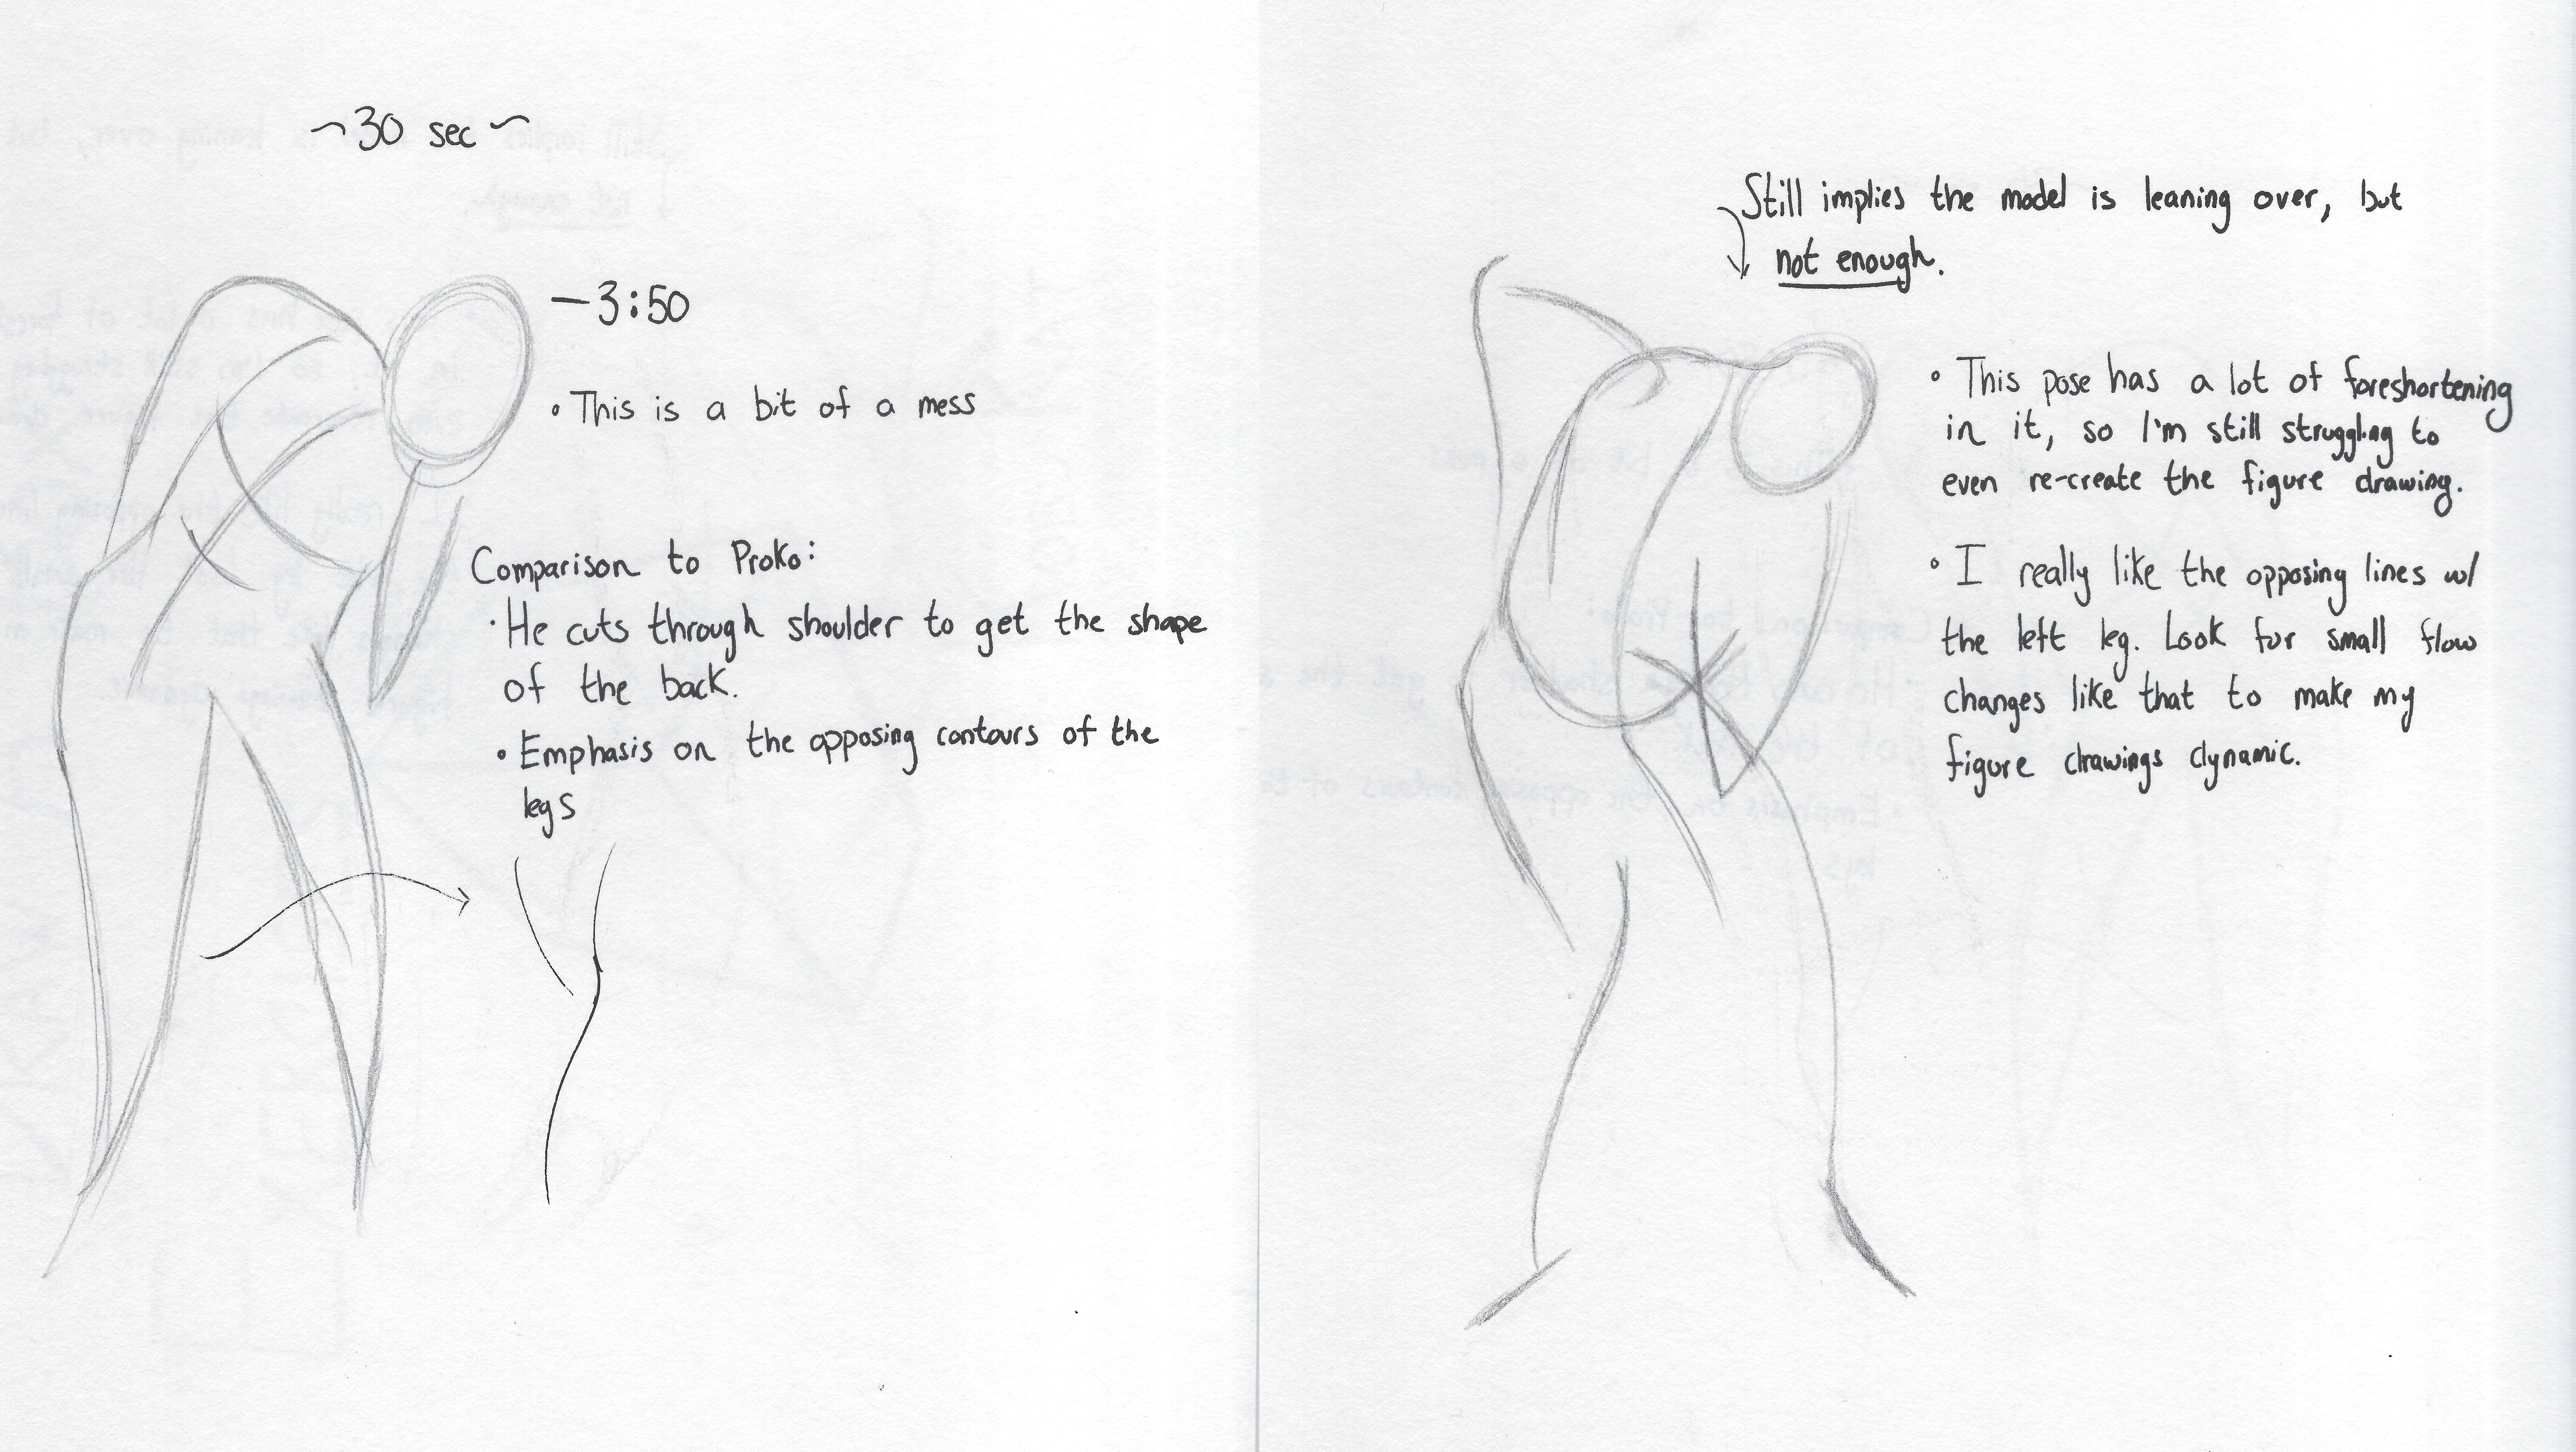 ~30 sec~
—3:50
• This is a bit of a mess
Comparison to Proko:
• He cuts through shoulder to get the shape
of the back.
• Emphasis on the opposing contours of the
legs
Still implies the model is leaning over, but
not enough.
• This pose has a lot of foreshortening
in it, so I'm still struggling to
even re-create the figure drawing.
• I really like the opposing lines w/
the left leg. Look for small flow
changes like that to make my
figure drawings dynamic.